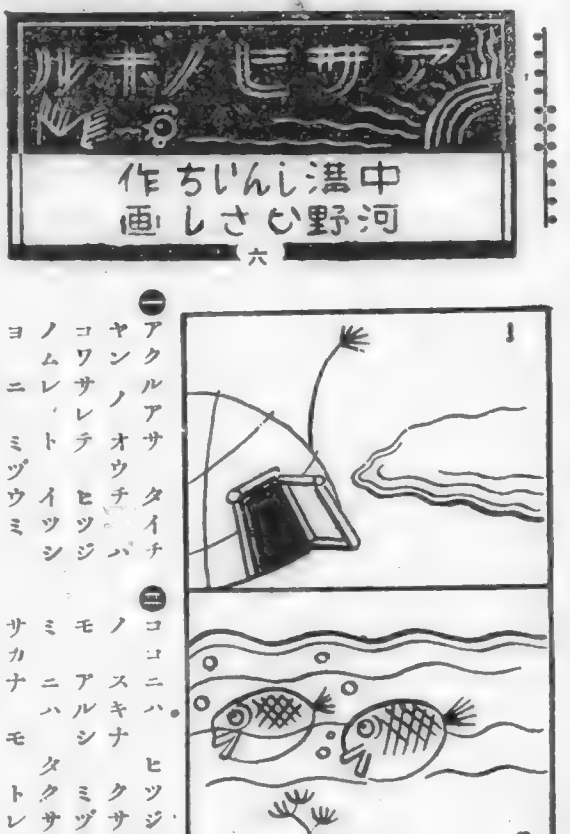 アサヒノボル
中溝しんいち作
河野むさし画
六
1
一
アクルアサ タイチ
ヤン ノ オウチ ハ
コワサレテ ヒツジ
ノムレ、ト イツシ
ヨ ニ ミヅウミ
二
ココニハ ヒツジ
ノ スキナ クサ
モ アルシ ミヅ
ミ ニハ タクサ
サカナ モ トレ